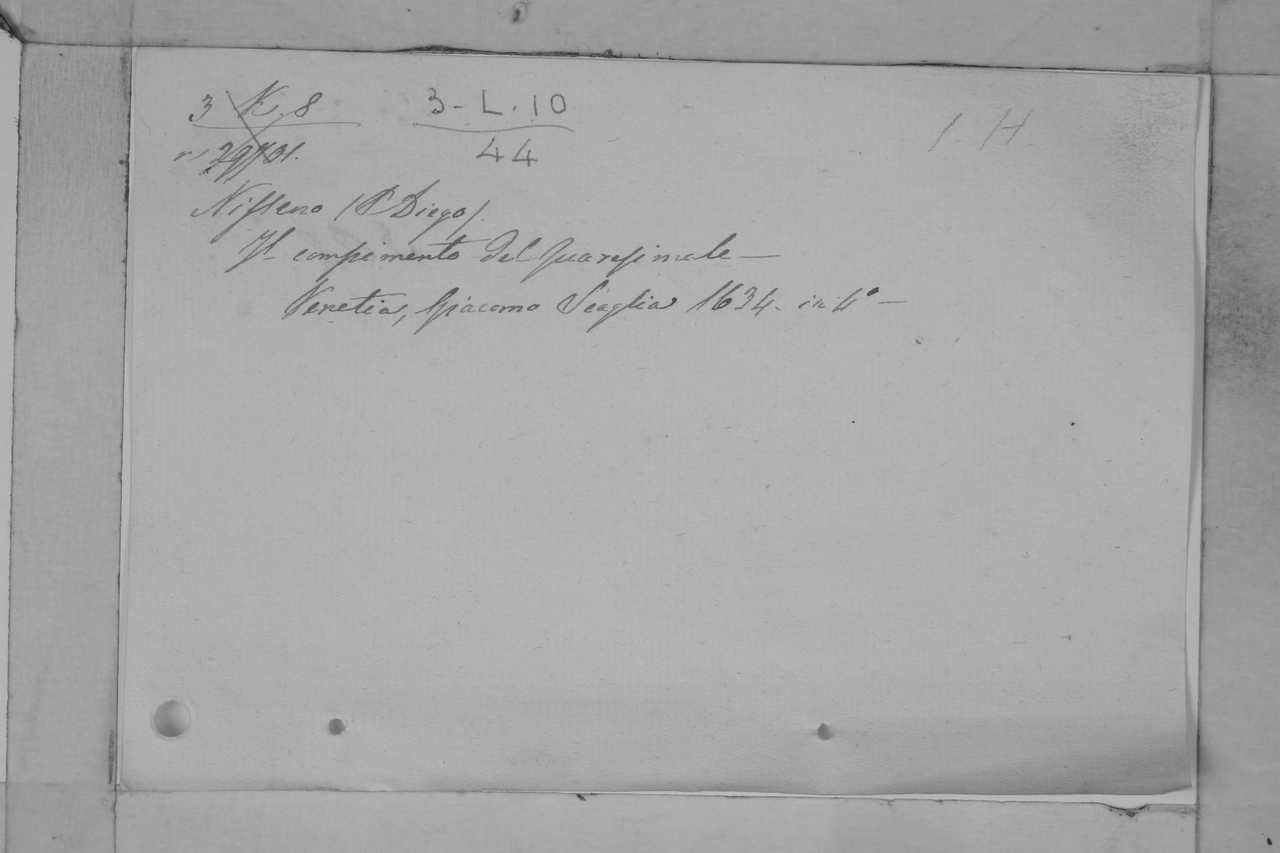 3 K. 8 3-L.10 1 H
29701. 44
Nisseno (P Diego)
Il compimento del Quaresimale —
Venetia, Giacomo Scaglia 1634. in 4° —